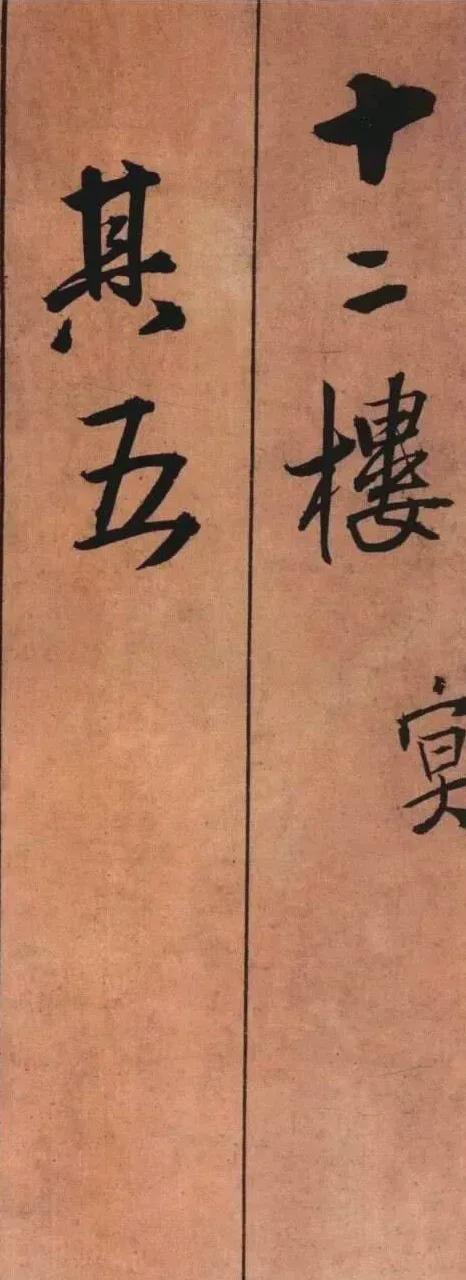 十二樓
冥
其五